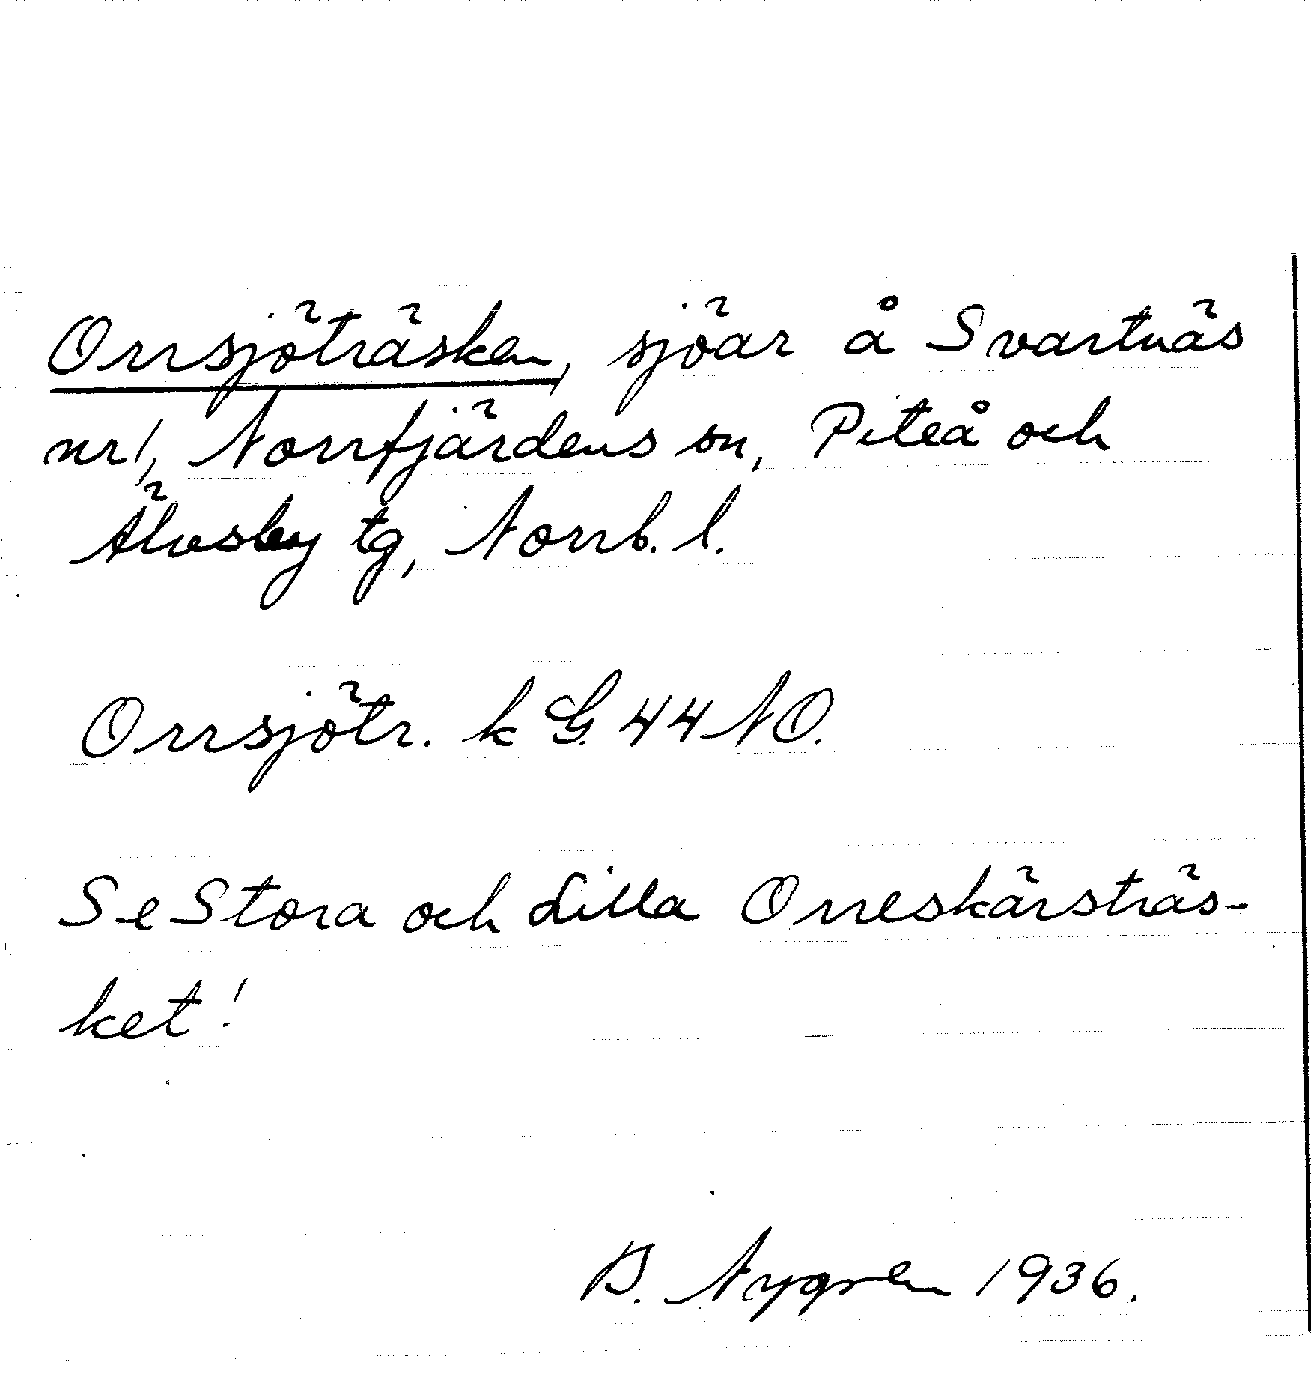 Orrsjöträsken, sjöar å Svartnäs
nr 1, Norrfjärdens sn, Piteå och
Älvsby tg, Norrb. l.
Orrsjötr. k G. 44 NO.
Se Stora och Lilla Orreskärsträs-
ket!
B. Nygren 1936.